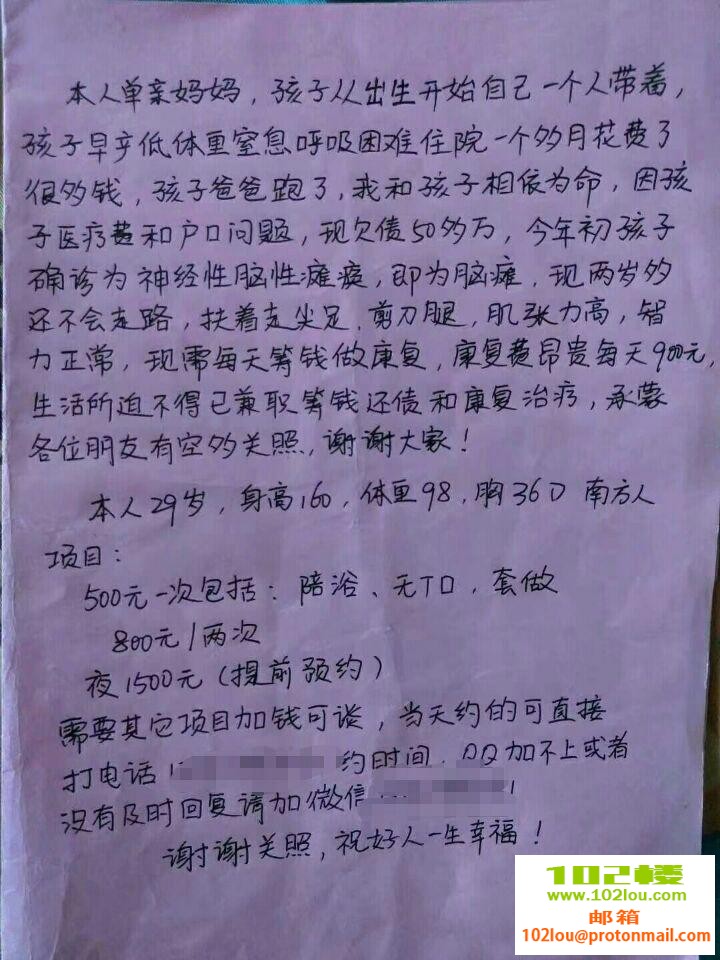 本人单亲妈妈，孩子从出生开始自己一个人带着，
孩子早产低体重窒息呼吸困难住院一个多月花费了
很多钱，孩子爸爸跑了，我和孩子相依为命，因孩
子医疗费和户口问题，现欠债50多万，今年初孩子
确诊为神经性脑性瘫痪，即为脑瘫，现两岁多
还不会走路，扶着走尖足，剪刀腿，肌张力高，智
力正常，现需每天筹钱做康复，康复费昂贵每天900元，
生活所迫不得已兼职筹钱还债和康复治疗，承蒙
各位朋友有空多关照，谢谢大家！
本人29岁，身高160，体重98，胸36D 南方人
项目：
500元一次包括：陪浴、无TD，套做
800元/两次
夜1500元（提前预约）
需要其它项目加钱可谈，当天约的可直接
打电话 约时间，QQ加不上或者
没有及时回复请加微信
谢谢关照，祝好人一生幸福！
102楼
www.102lou.com
邮箱
102lou@protonmail.com